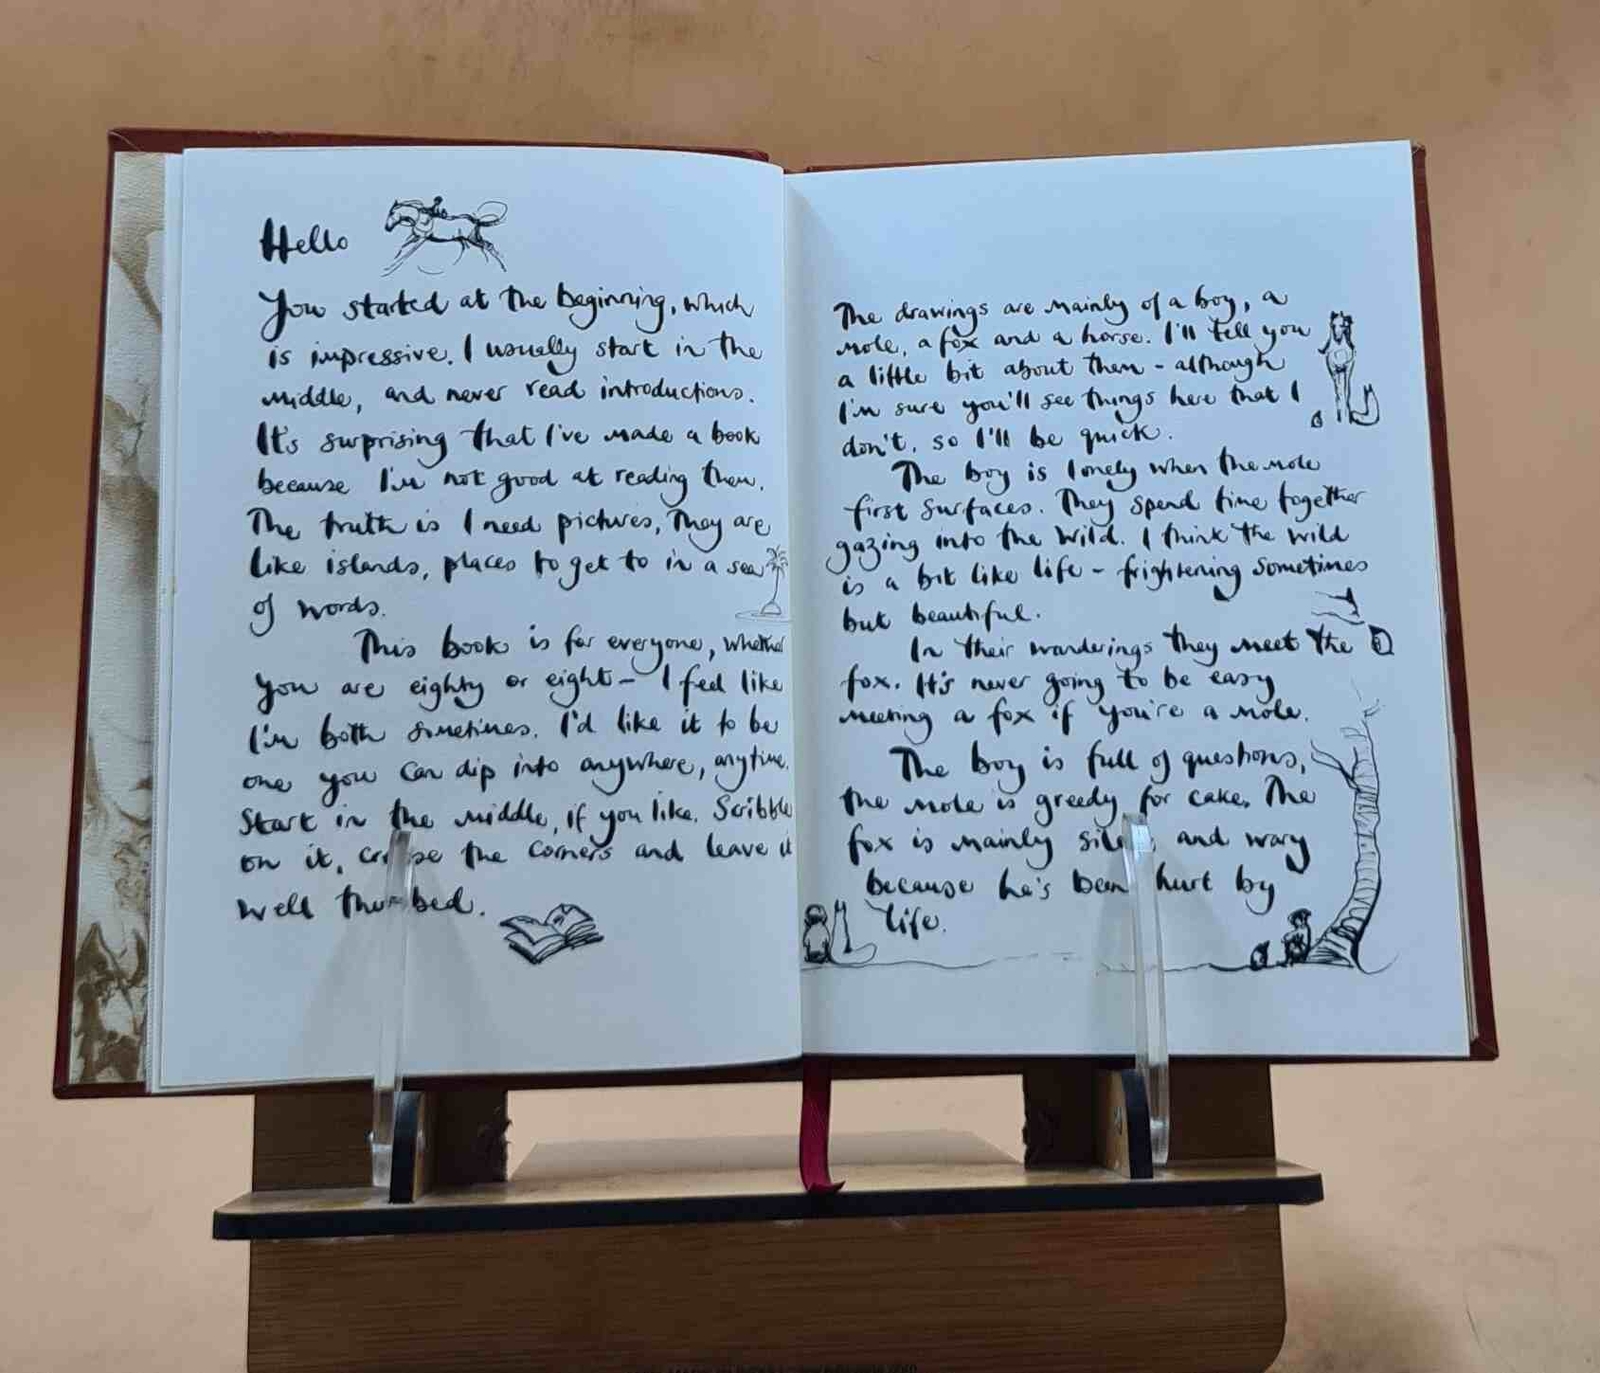 Hello
You started at the beginning, which
is impressive. I usually start in the
middle, and never read introductions.
It's surprising that I've made a book
because I'm not good at reading them.
The truth is I need pictures, They are
like islands, places to get to in a sea
of words.
This book is for everyone, whether
you are eighty or eight – I feel like
I'm both sometimes. I'd like it to be
one you can dip into anywhere, anytime.
Start in the middle, if you like. Scribble
on it, the corners and leave it
well
The drawings are mainly of a boy, a
mole, a fox and a horse. I'll tell you
a little bit about them – although
I'm sure you'll see things here that I
don't, so I'll be quick.
The boy is lonely when the mole
first surfaces. They spend time together
gazing into the wild. I think the wild
is a bit like life – frightening sometimes
but beautiful.
In their wanderings they meet the
fox. It's never going to be easy
meeting a fox if you're a mole.
The boy is full of questions,
the mole is greedy for cake. The
fox is mainly and wary
because he's been hurt by
life.